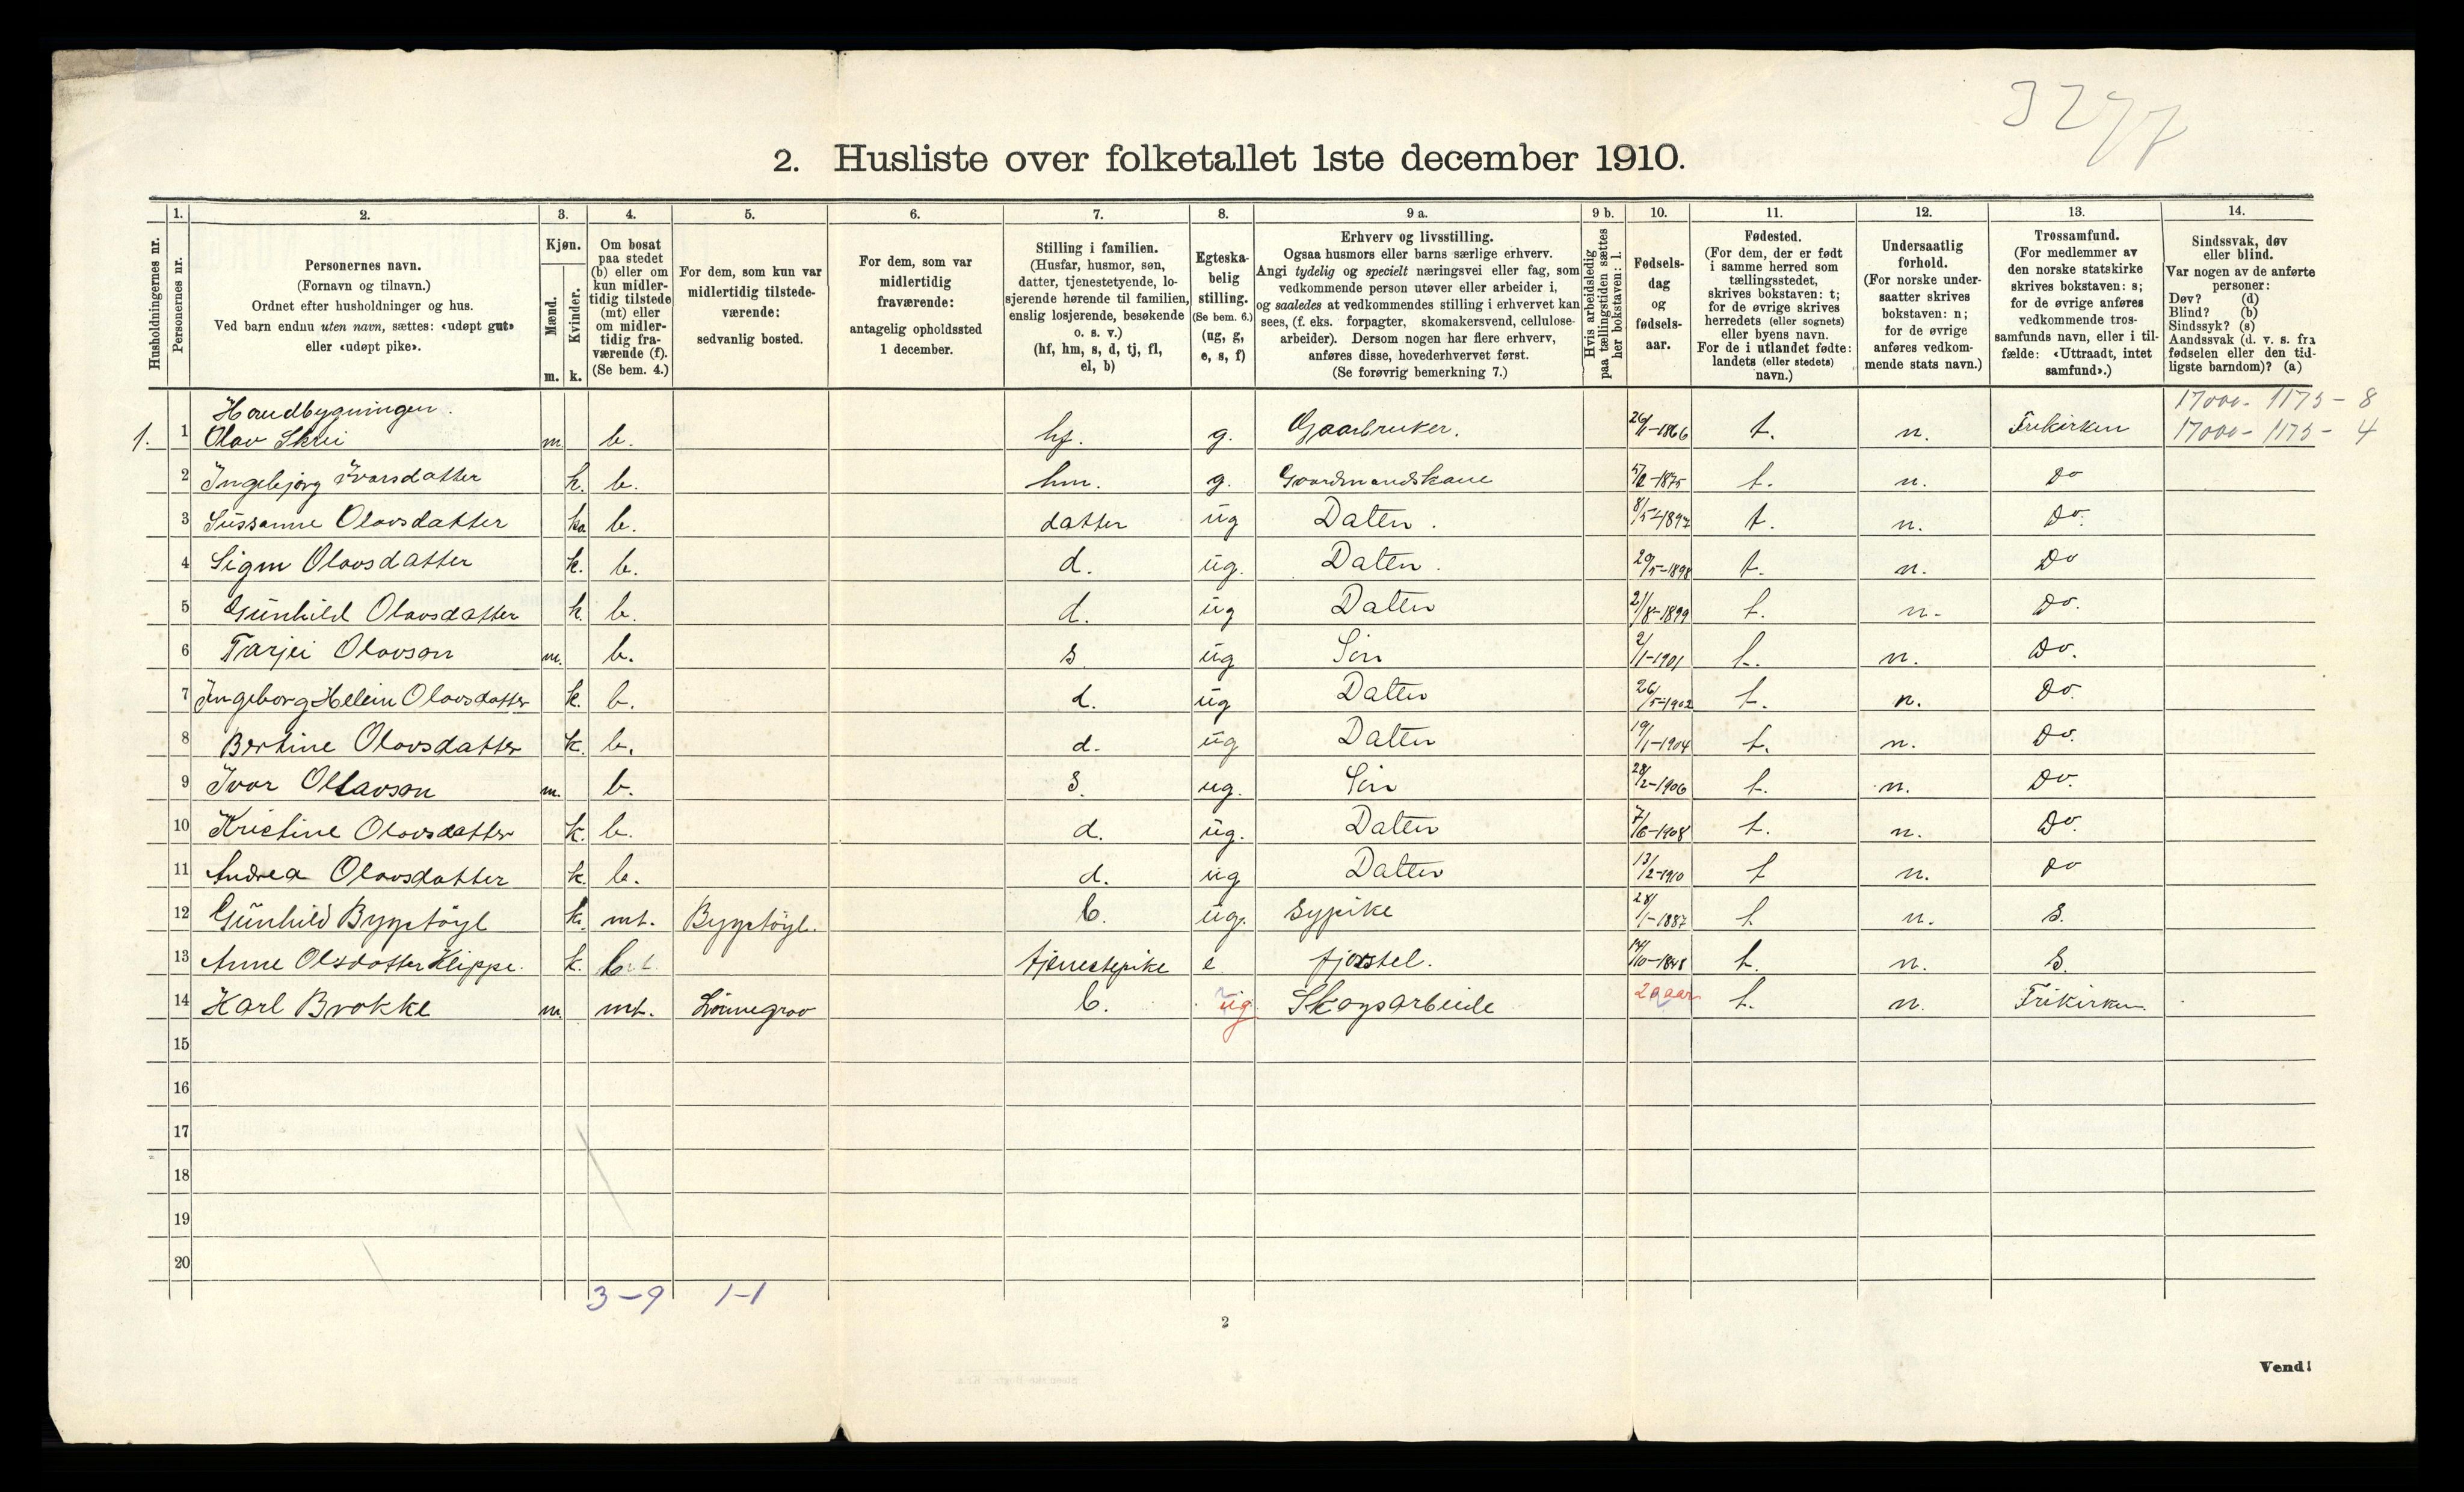 3277
2. Husliste over folketallet 1ste december 1910.
Husholdningernes nr.
1.
Personernes nr.
2.
Personernes navn.
(Fornavn og tilnavn.)
Ordnet efter husholdninger og hus.
Ved barn endnu uten navn, sættes: «udøpt gut»
eller «udøpt pike».
3.
Kjøn.
Mænd.
Kvinder.
m. k.
4.
Om bosat
paa stedet
(b) eller om
kun midler-
tidig tilstede
(mt) eller
om midler-
tidig fra-
værende (f).
(Se bem. 4.)
5.
For dem, som kun var
midlertidig tilstede-
værende:
sedvanlig bosted.
6.
For dem, som var
midlertidig
fraværende:
antagelig opholdssted
1 december.
7.
Stilling i familien.
(Husfar, husmor, søn,
datter, tjenestetyende, lo-
sjerende hørende til familien,
enslig losjerende, besøkende
o. s. v.)
(hf, hm, s, d, tj, fl,
el, b)
8.
Egteska-
belig
stilling.
(Se bem. 6.)
(ug, g,
e, s, f)
9 a.
Erhverv og livsstilling.
Ogsaa husmors eller barns særlige erhverv.
Angi tydelig og specielt næringsvei eller fag, som
vedkommende person utøver eller arbeider i,
og saaledes at vedkommendes stilling i erhvervet kan
sees, (f. eks. forpagter, skomakersvend, cellulose-
arbeider). Dersom nogen har flere erhverv,
anføres disse, hovederhvervet først.
(Se forøvrig bemerkning 7.)
9 b.
Hvis arbeidsledig
paa tællingstiden sættes
her bokstaven: l.
10.
Fødsels-
dag
og
fødsels-
aar.
11.
Fødested.
(For dem, der er født
i samme herred som
tællingsstedet,
skrives bokstaven: t;
for de øvrige skrives
herredets (eller sognets)
eller byens navn.
For de i utlandet fødte:
landets (eller stedets)
navn.)
12.
Undersaatlig
forhold.
(For norske under-
saatter skrives
bokstaven: n;
for de øvrige
anføres vedkom-
mende stats navn.)
13.
Trossamfund.
(For medlemmer av
den norske statskirke
skrives bokstaven: s;
for de øvrige anføres
vedkommende tros-
samfunds navn, eller i til-
fælde: «Uttraadt, intet
samfund».)
14.
Sindssvak, døv
eller blind.
Var nogen av de anførte
personer:
Døv? (d)
Blind? (b)
Sindssyk? (s)
Aandssvak (d. v. s. fra
fødselen eller den tid-
ligste barndom)? (a)
17000 - 1175 - 8
Hovedbygningen.
1. 1 Olav Skrei m. b. hf. g. Gaarbruker. 26/1-1866 t. n. Frikirken 17000 - 1175 - 4
2 Ingebjørg Ivarsdatter k. b. hm. g. Gaardmandskone 1875 t. n. Do
3 Sussanne Olavsdatter k b. datter ug Datter. 8/5-1897 t. n. Do.
4 Signe Olavsdatter k. b. d. ug. Datter. 20/5-1898 t. n. Do
5 Gunhild Olavsdatter k. b. d. ug Datter 21/8-1899 t. n. Do.
6 Tarjei Olavson m. b. s ug Søn 2/1-1901 t. n. Do.
7 Ingeborg Helene Olavsdatter k. b. d. ug Datter 26/5-1902 t. n. Do.
8 Bertine Olavsdatter k. b. d. ug Datter 19/1-1904 t. n. Do.
9 Ivar Ollavson m. b. s. ug. Søn 28/2-1906 t. n. Do.
10 Kristine Olavsdatter k. b. d. ug. Datter 7/6-1908 t. n. Do.
11 Andrea Olavsdatter k. b. d. ug Datter 13/2-1910 t n. Do
12 Gunhild Bygstøyl k. mt. Bygstøyl. b. ug. Sypike 28/1-1887 t n. S.
13 Anne Olsdatter Klippe. k. b tjenestepike e fjøsstel. 14/10-1848 t. n. S.
14 Karl Brokke m mt. Lønnegrav b. ug. Skogsarbeide 20 aar t. n. Frikirken
15
16
17
18
19
20
3-9 1-1
2
Vend!